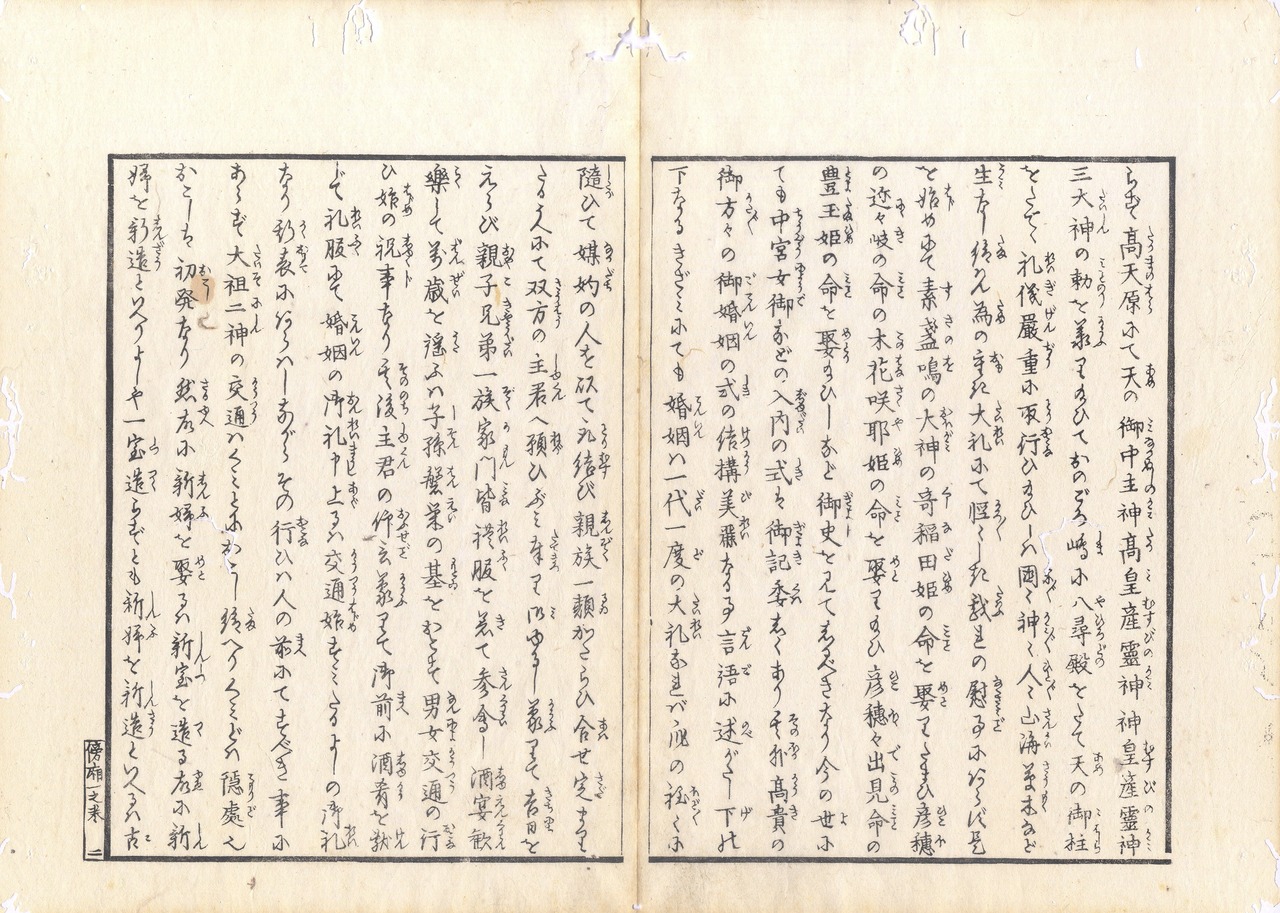 らで高天原にて天の御中主神高皇産霊神神皇産霊神
三大神の勅を承り玉ひておのごろ嶋に八尋殿をたて天の御柱
をたてゝ礼儀嚴重に取行ひ玉ひしハ國々神々人々山海草木など
生なし給ハん為の重き大礼にて軽々しき戯れの慰事にあらず是
を始めにて素盞嗚の大神の奇稲田姫の命を娶りたまひ彦穂
の迩々岐の命の木花咲耶姫の命を娶り玉ひ彦穂々出見命の
豊玉姫の命を娶玉ひしなど御史を見てしるべきなり今の世に
ても中宮女御などの入内の式は御記委しくあり其外高貴の
御方々の御婚姻の式の結構美麗なる事言語に述がたし下れ
下なるきざミにても婚姻ハ一代一度の大礼なれバ身の程々に
随ひて媒妁の人を以て取結び親族一類かたらひ合せ定まり
たる人にて双方の主君へ願ひぶミ奉り御ゆるし承りて吉日を
えらび親子兄弟一族家門皆礼服を着て参会し酒宴歓
樂して万歳を謡ふハ子孫繁栄の基をひらき男女交通の行
ひ始の祝事なり其後主君の仰を承りて御前に酒肴を献
じて礼服にて婚姻の御礼申上るハ交通始すミたるよしの御礼
なり形表にあらハしながらその行ひハ人の前にてすべき事に
あらず大祖二神の交通ハくミどにおこし給へりくミどハ隠處也
おこしは初発なり然るに新婦を娶るハ新室を造る故に新
婦を新造と云へりよしや一室造らずとも新婦を新造と云るハ古
傍廂一之末 二